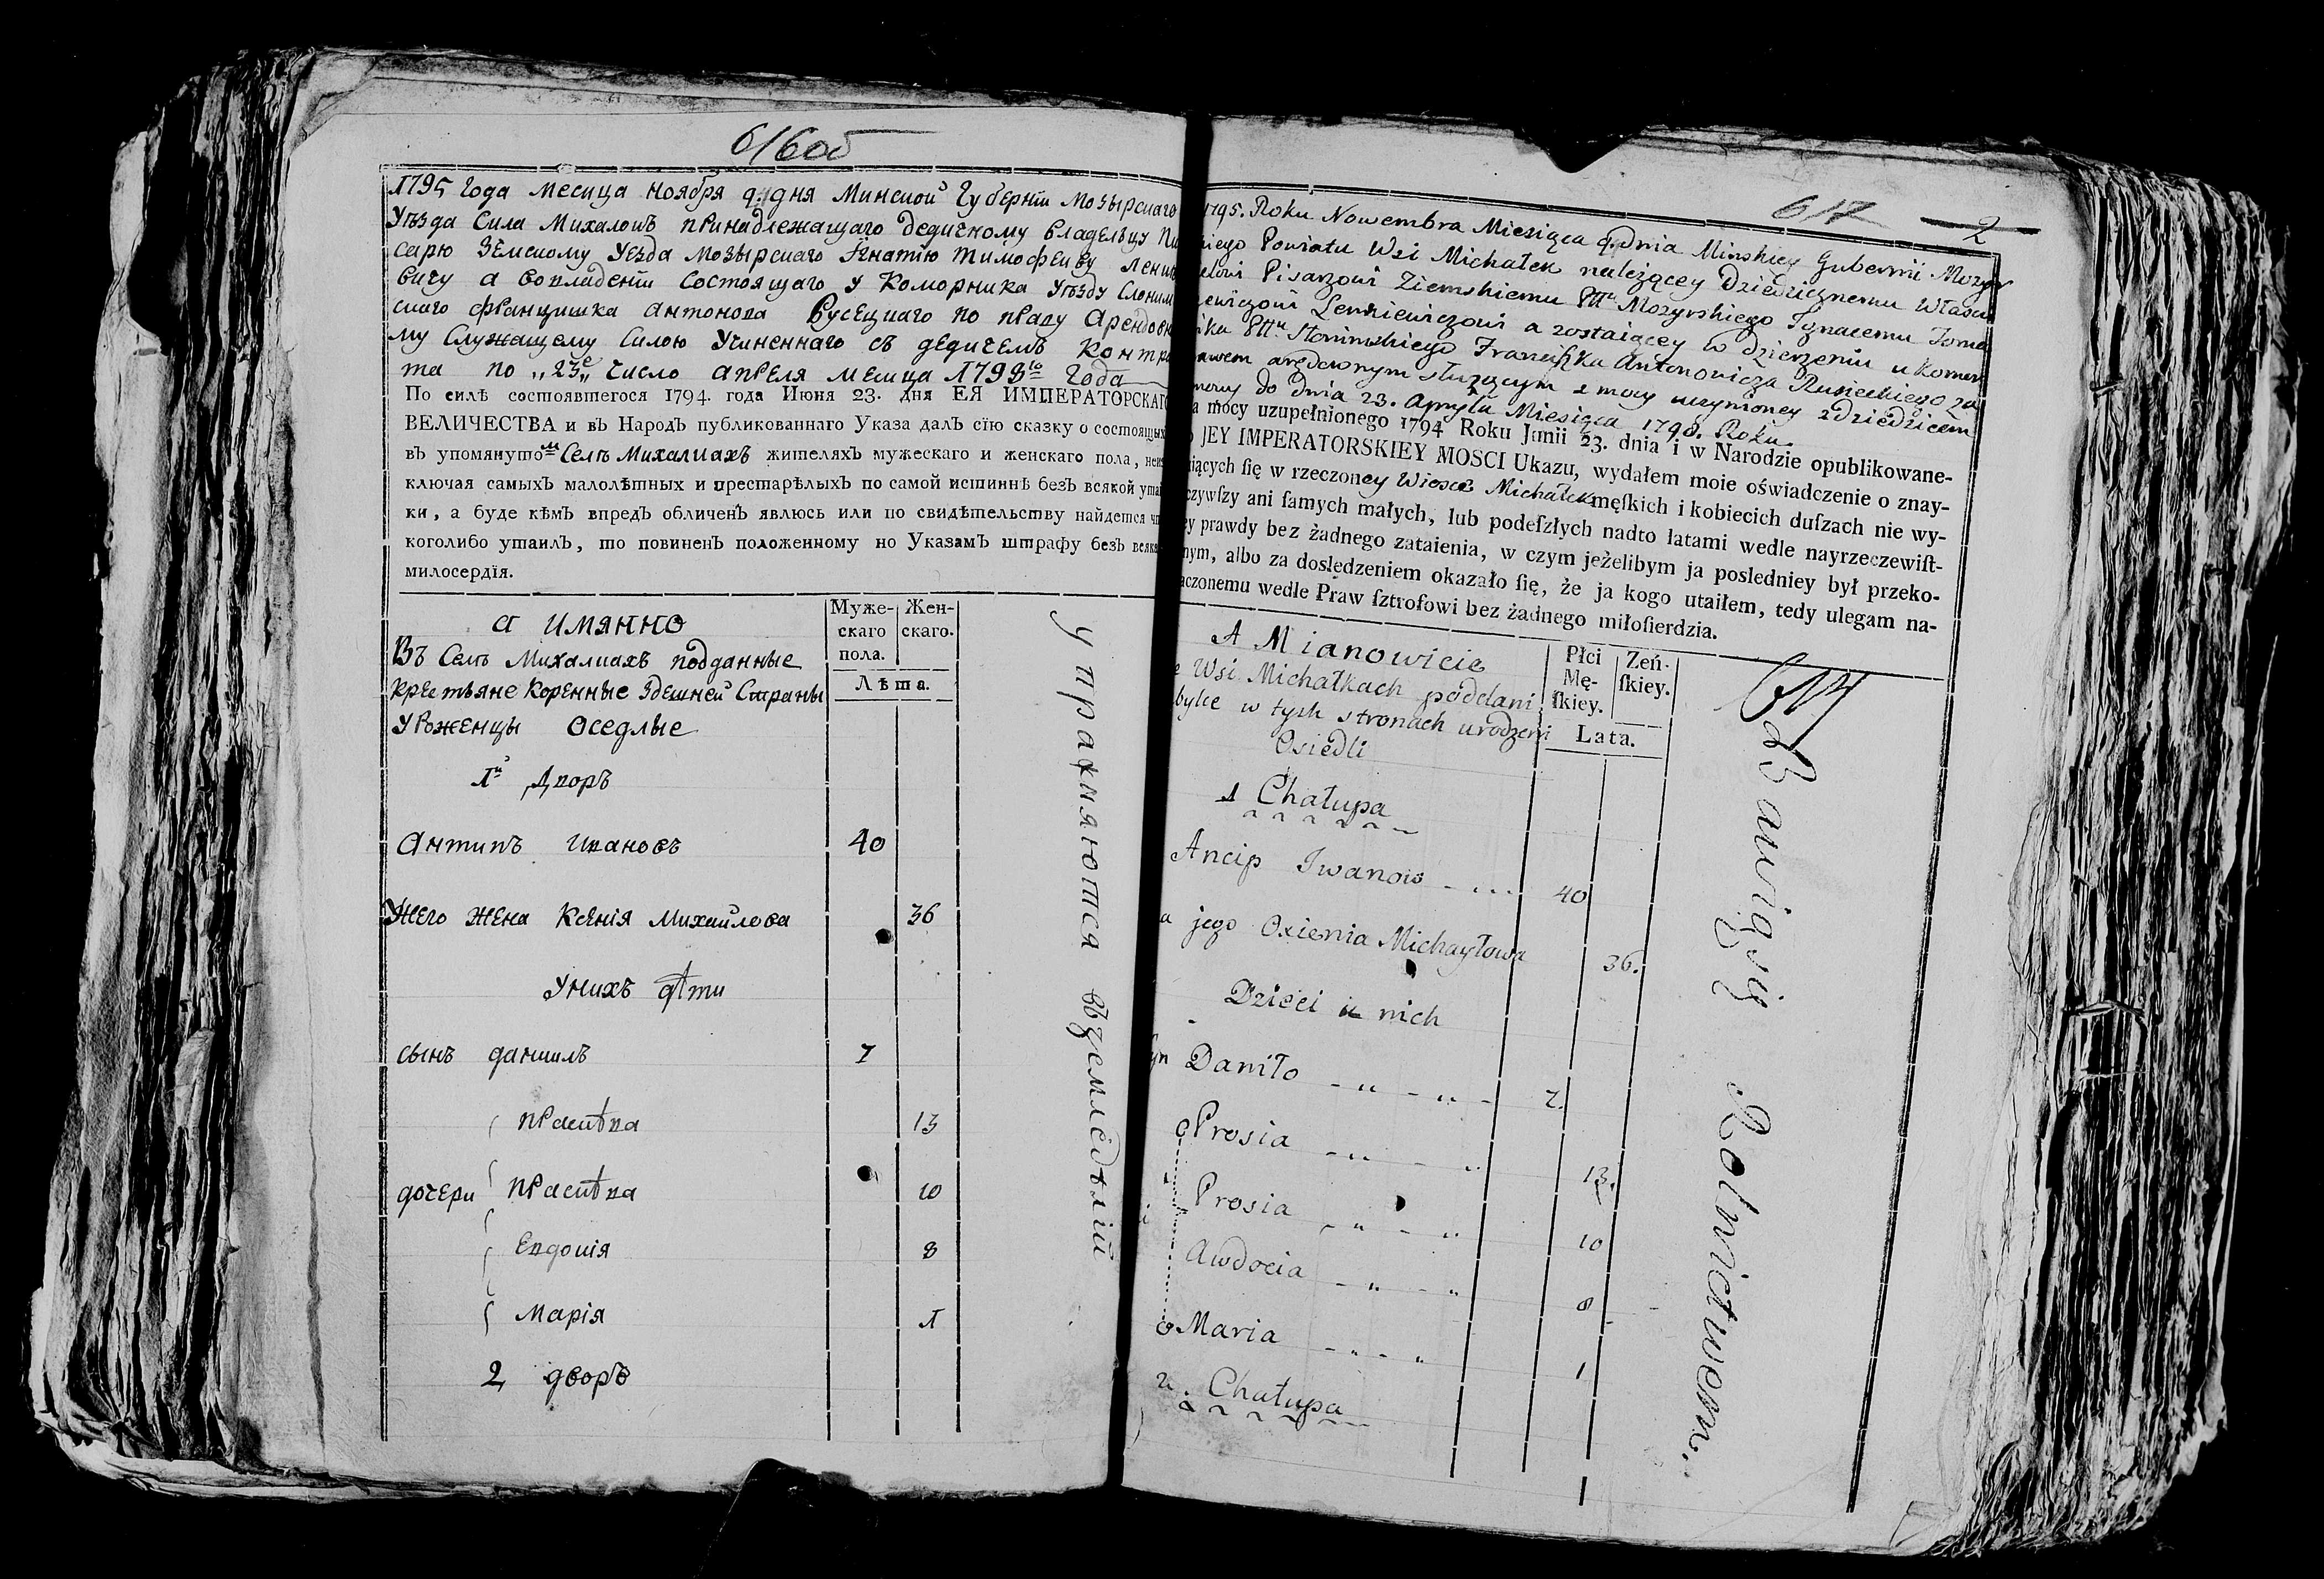 616об
1795 года месица ноября 9. дня Минской Губерніи Мозырскаго
Уѣзда Села Михалокъ принадлежащаго дедичному владельцу Пи
сарю Земскому Уезда Мозырскаго Игнатію Тимофеиву Лени
вичу а вовладеніи состоящаго у Коморника Уѣзду Слоним
скаго Францишка Антонова Русецкаго по праву Арендовн
му служащему силою Учиненнаго съ дедичемъ контра
та по „23е„ число апреля месица 1798го года
По силѣ состоявшегося 1794. года Июня 23. дня ЕЯ ИМПЕРАТОРСКАГО
ВЕЛИЧЕСТВА и въ Народъ публикованнаго Указа далъ сію сказку о состоящихъ
въ упомянутомъ Селѣ Михалкахъ жителяхъ мужескаго и женскаго пола, неиз
ключая самыхъ малолѣтныхъ и престарѣлыхъ по самой истиннѣ безъ всякой утай
ки, а буде кѣмъ впредь обличенъ явлюсь или по свидѣтельству найдется чт
коголибо утаилъ, то повиненъ положенному по Указамъ штрафу безъ всяка
милосердїя.
а имянно
Муже-
скаго
пола.
Жен-
скаго.
Лѣта.
Въ Селѣ Михалкахъ подданные
крестьяне коренные здешней страны
уроженцы оседлые
1й дворъ
Антипъ Ивановъ 40
Унего жена Ксенія Михайлова 36
Унихъ дѣти
сынъ даниилъ 7
прасковѣа 13
дочери прасковѣа 10
Евдокія 8
Марія 1
2 дворъ
упражняются въземледѣліи
617 2
1795. Roku Nowembra Miesiąca 9. Dnia Minskiey Gubernii Mozyr
kiego Powiatu Wsi Michałek należącey Dziedzicznemu Własci
elowi Pisarzowi Ziemskiemu Pttu Mozyrskiego Ignacemu Toma
ewiczowi Lenkiewiczowi a zostaiącey w dzierzeniu u komor
nika Pttu Słonimskiego Franciszka Antonowicza Rusieckiego za
prawem arędownym służącym z mocy uczynioney z dziedzicem
umowy do Dnia 23. Apryla Miesiąca 1798. Roku.
a mocy uzupełnionego 1794 Roku Junii 23. dnia i w Narodzie opublikowane-
o JEY IMPERATORSKIEY MOSCI Ukazu, wydałem moie oświadczenie o znay-
uiących się w rzeczoney Wiosce Michałek męskich i kobiecich duszach nie wy-
czywszy ani samych małych, lub podeszłych nadto latami wedle nayrzeczewist-
ey prawdy bez żadnego zataienia, w czym jeżelibym ja posledniey był przeko-
nym, albo za dosledzeniem okazało się, że ja kogo utaiłem, tedy ulegam na-
aczonemu wedle Praw sztrofowi bez żadnego miłosierdzia.
A Mianowicie
Płci
Mę-
skiey.
Żeń-
skiey.
Lata.
e Wsi Michałkach poddani
bylce w tych stronach urodzeni
Osiedli
1 Chałupa
Ancip Iwanow 40
a jego Oxienia Michayłowa 36.
Dzieci u nich
syn Daniło 7.
Prosia 13.
Prosia 10
Awdocia 8
Maria 1
2. Chałupa
Bawią się Rolnictwem.